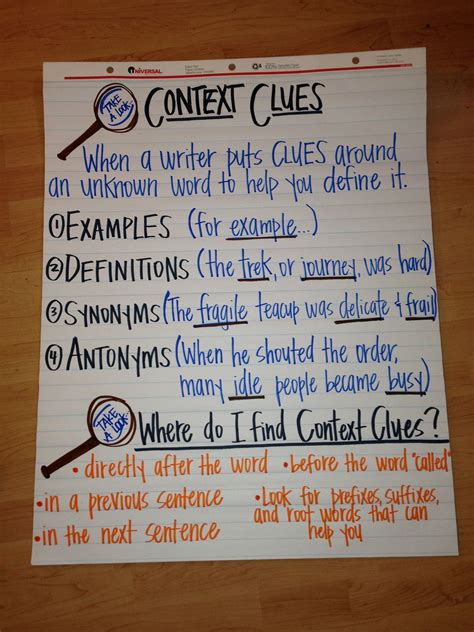 UNIVERSAL
TAKE A LOOK
CONTEXT CLUES
When a writer puts CLUES around
an unknown word to help you define it.
① EXAMPLES (for example...)
② DEFINITIONS (the trek, or journey, was hard)
③ SYNONYMS (The fragile teacup was delicate & frail)
④ ANTONYMS (When he shouted the order,
many idle people became busy)
TAKE A LOOK
Where do I find Context Clues?
• directly after the word • before the word "called"
• in a previous sentence
• Look for prefixes, suffixes,
and root words that can
help you
• in the next sentence